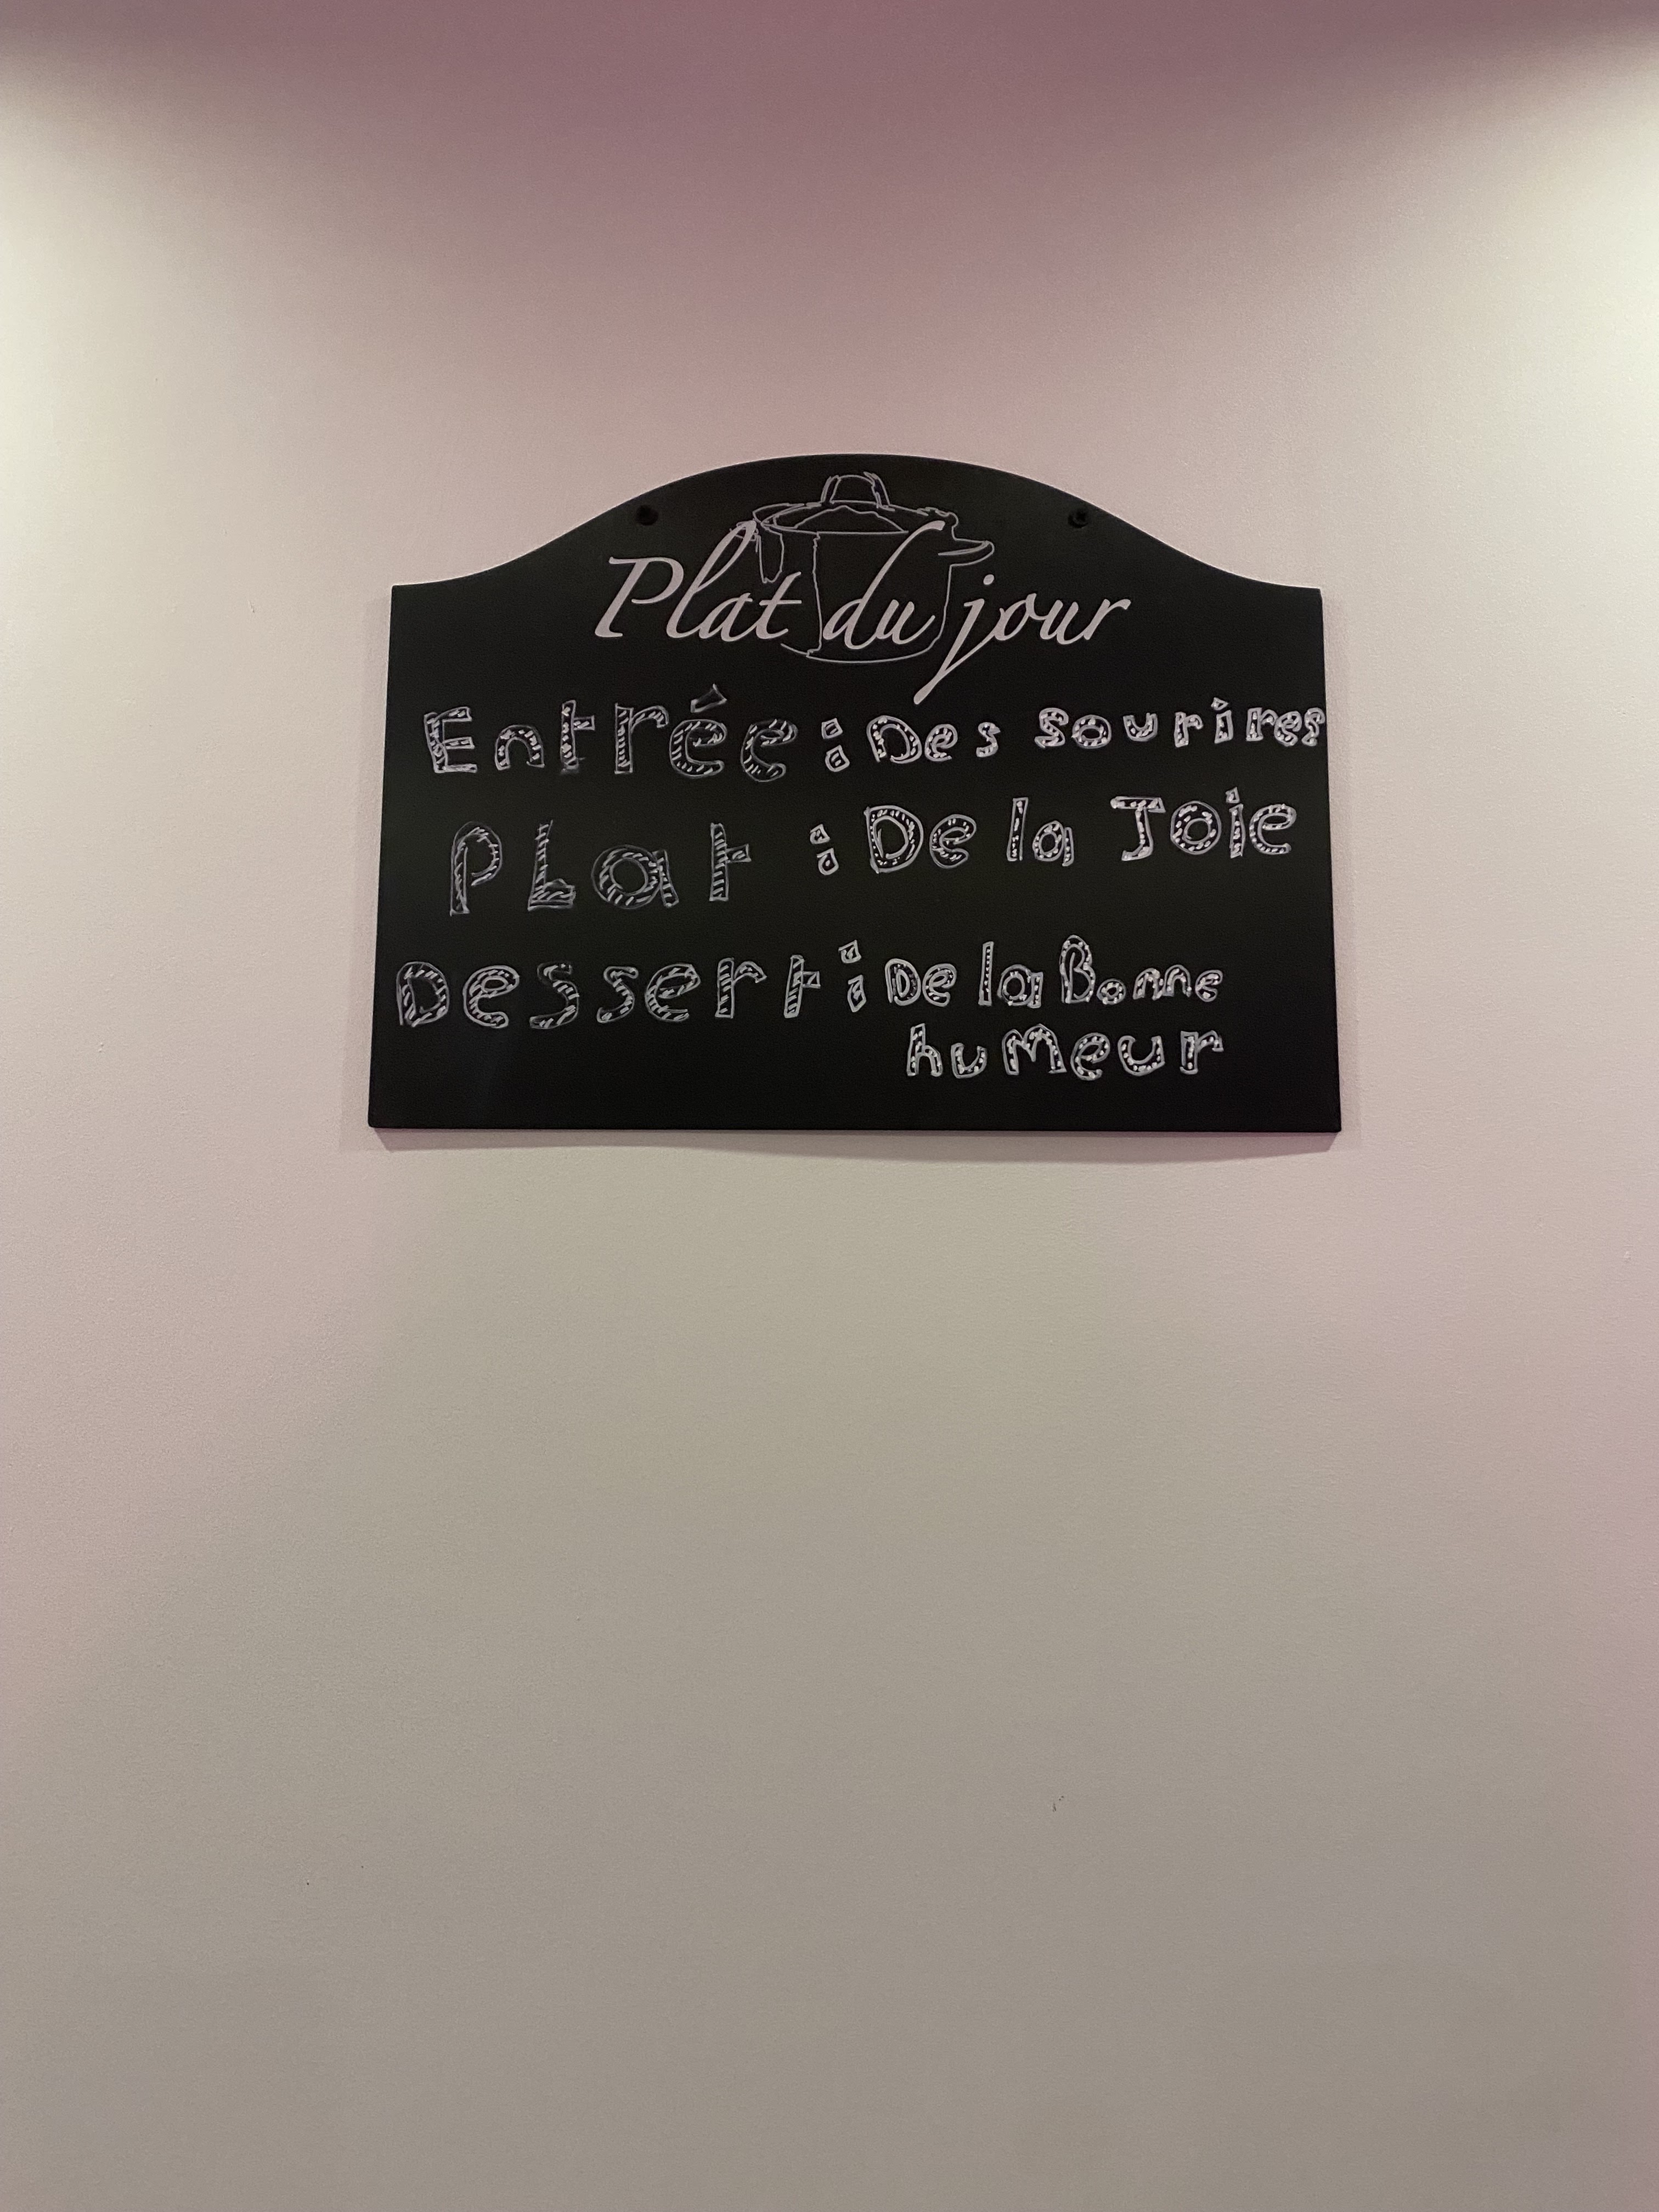 Plat du jour
Entrée : Des sourires
PLat : De la Joie
Dessert : De la Bonne
huMeur